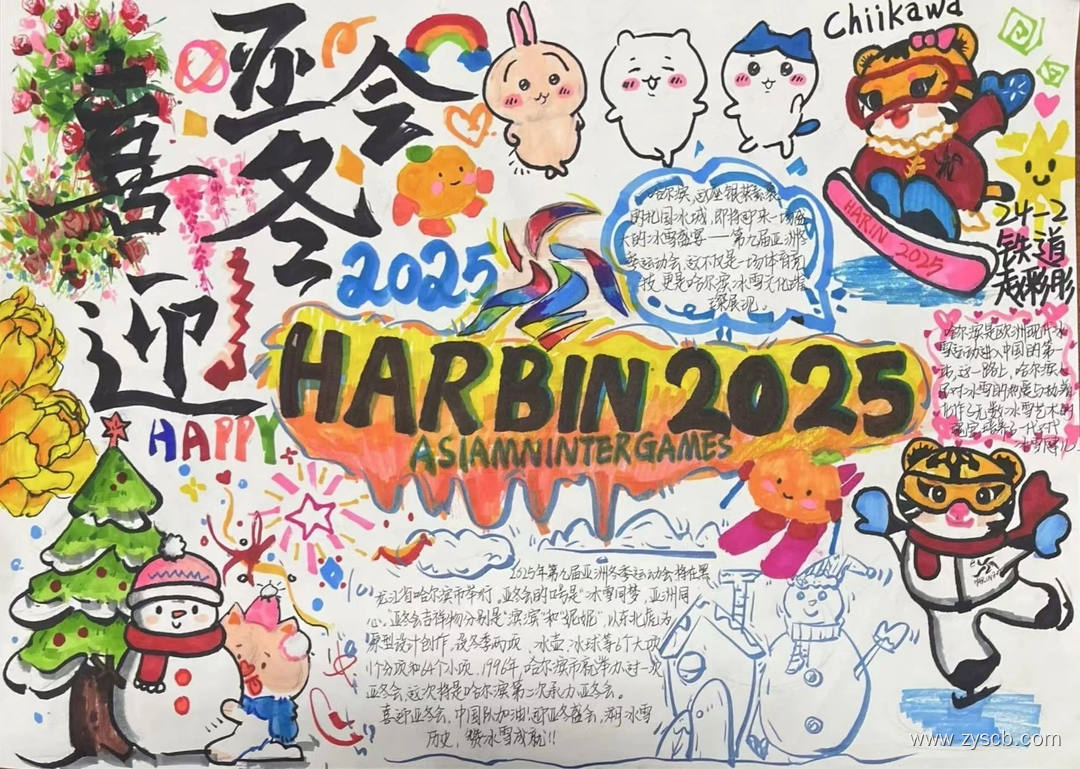 喜迎
亚冬会
Chiikawa
2025
HARBIN 2025
24-2
铁道
HARBIN 2025
ASIAMNINTERGAMES
HAPPY
哈尔滨,这座银装素裹
的北国冰城,即将迎来一场盛
大的冰雪盛宴——第九届亚洲冬
季运动会,这不仅是一场体育竞
技,更是哈尔滨冰雪文化
深展现。
哈尔滨是欧洲现代冰
雪运动进入中国的第一
站,这一路上,哈尔滨人
民对冰雪的热爱与执着
2025年第九届亚洲冬季运动会将在黑
龙江省哈尔滨市举行,亚冬会的口号是“冰雪同梦,亚洲同
心”。亚冬会吉祥物分别是“滨滨”和“妮妮”,以东北虎为
原型设计创作,设冬季两项、冰壶、冰球等6个大项
11个分项和64个小项,1996年,哈尔滨市就举办过一次
亚冬会,这次将是哈尔滨第二次承办亚冬会。
喜迎亚冬会,中国队加油!迎亚冬盛会,溯冰雪
历史,铸冰雪成就!!
www.zyscb.com